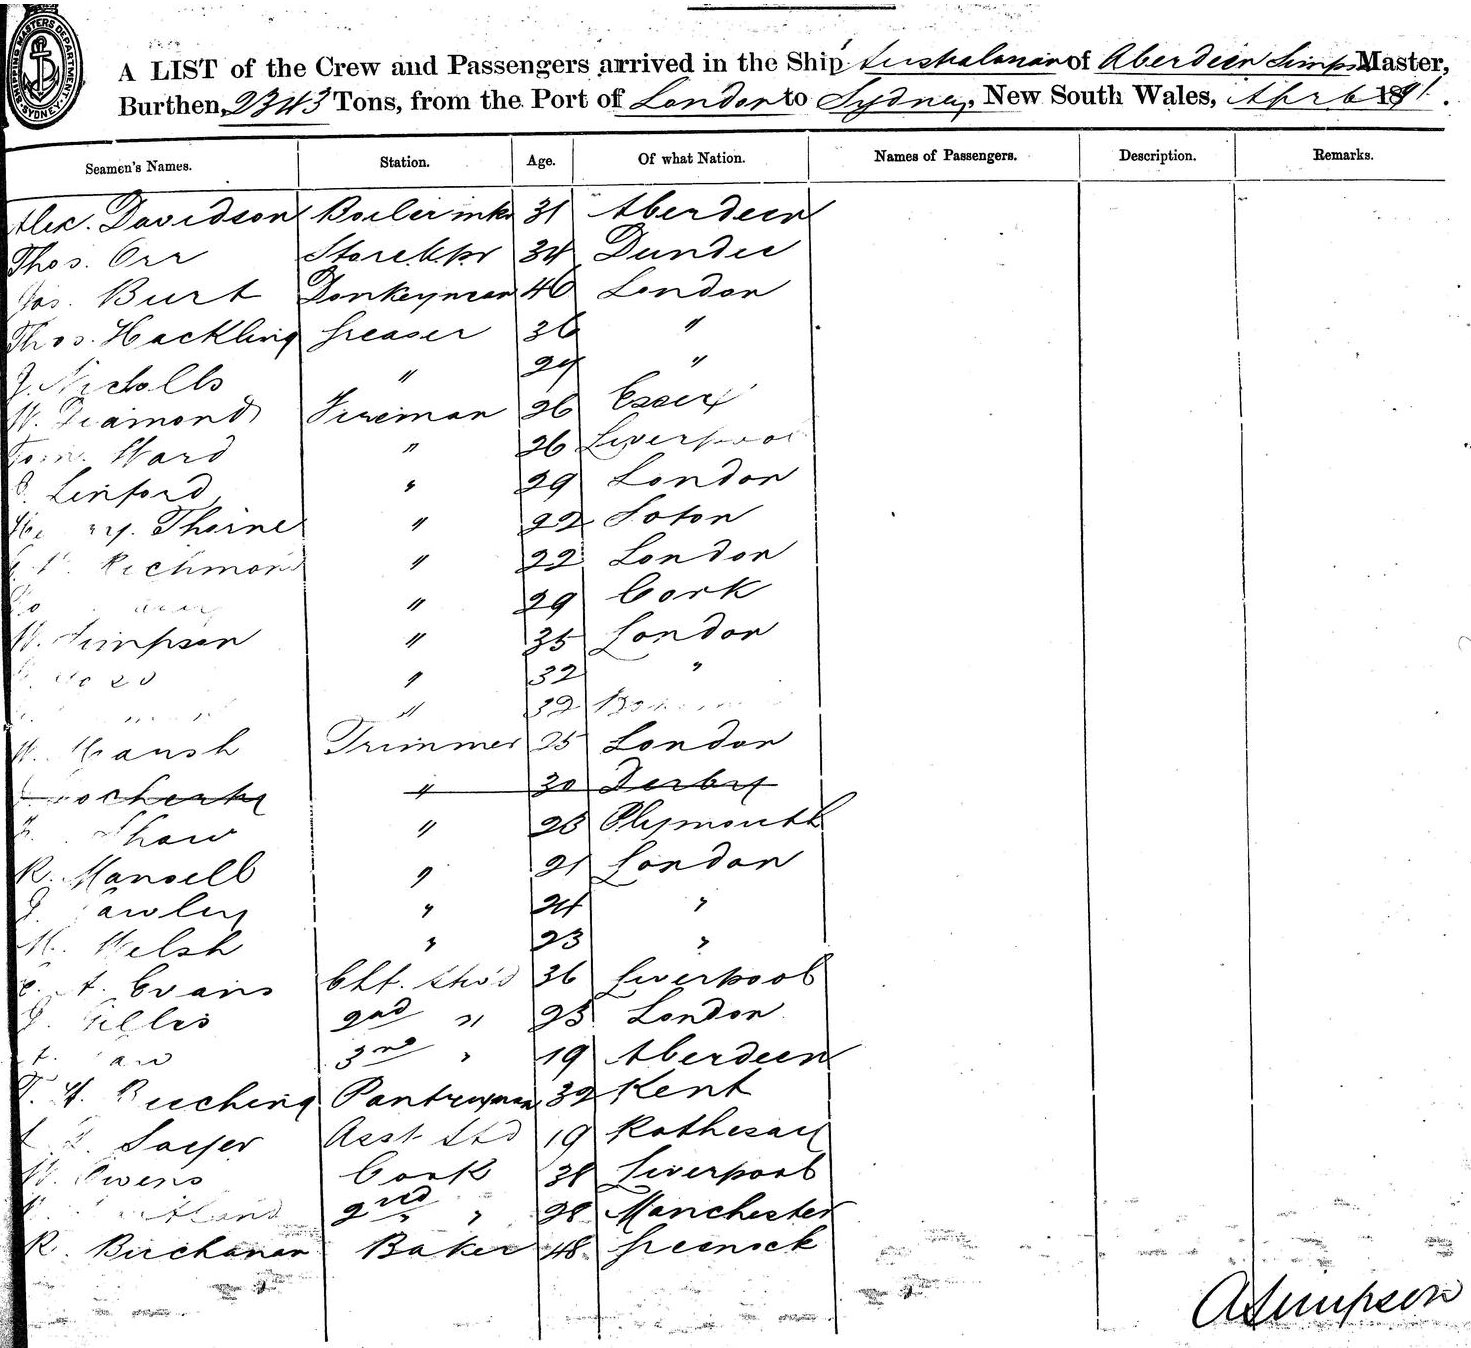 SHIPPING MASTERS DEPARTMENT SYDNEY
A LIST of the Crew and Passengers arrived in the Ship Australasian of Aberdeen Simpson Master,
Burthen, 2343 Tons, from the Port of London to Sydney, New South Wales, Apr 6 1891.
Seamen's Names. Station. Age. Of what Nation. Names of Passengers. Description. Remarks.
Alex. Davidson Boilermkr 31 Aberdeen
Thos. Orr Storekpr 34 Dundee
Jas. Burt Donkeyman 46 London
Thos. Hackling Greaser 36 "
J. Nicholls " 29 "
W. Diamond Fireman 26 Essex
Tom. Ward " 26 Liverpool
Linford " 29 London
Thorne " 22 Soton
Richmond " 22 London
" 29 Cork
W. Simpson " 35 London
" 32 "
" 32
W. Marsh Trimmer 25 London
" 30 Derby
Shaw " 23 Plymouth
R. Mansell " 21 London
J. " 24 "
M. Welsh " 23 "
A. Evans Chf. Stwd 36 Liverpool
J. Gillis 2nd " 23 London
3rd " 19 Aberdeen
T. H. Beeching Pantryman 32 Kent
Asst Std 19 Rothesay
W. Owens Cook 38 Liverpool
2nd " 28 Manchester
R. Buchanan Baker 48 Greenock
A Simpson